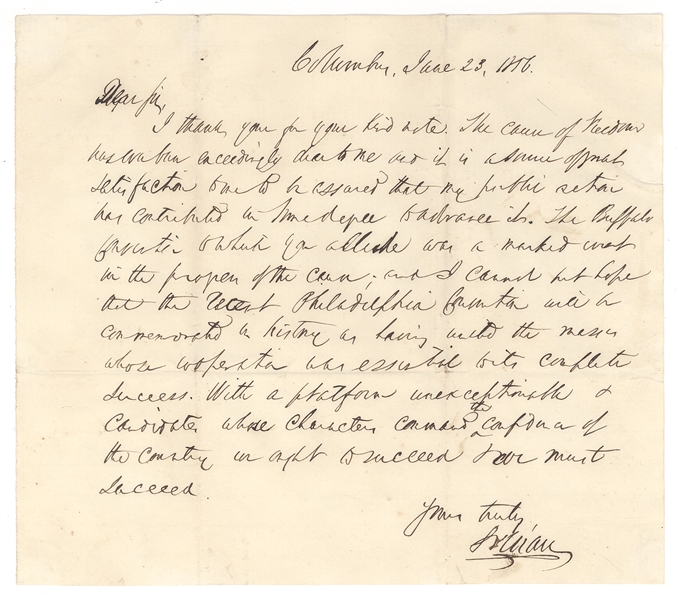 Columbus, June 23, 1856.
Dear Sir,
I thank you for your kind note. The cause of Freedom
has ever been exceedingly dear to me and it is a source of great
satisfaction to me to be assured that my public action
has contributed in some degree to advance it. The Buffalo
Convention to which you allude was a marked event
in the progress of the cause; and I cannot but hope
that the recent Philadelphia Convention will be
commemorated in history as having united the masses
whose cooperation was essential to its complete
success. With a platform unexceptionable &
candidates whose characters command the confidence of
the country we ought to succeed & we must
succeed.
Yours truly